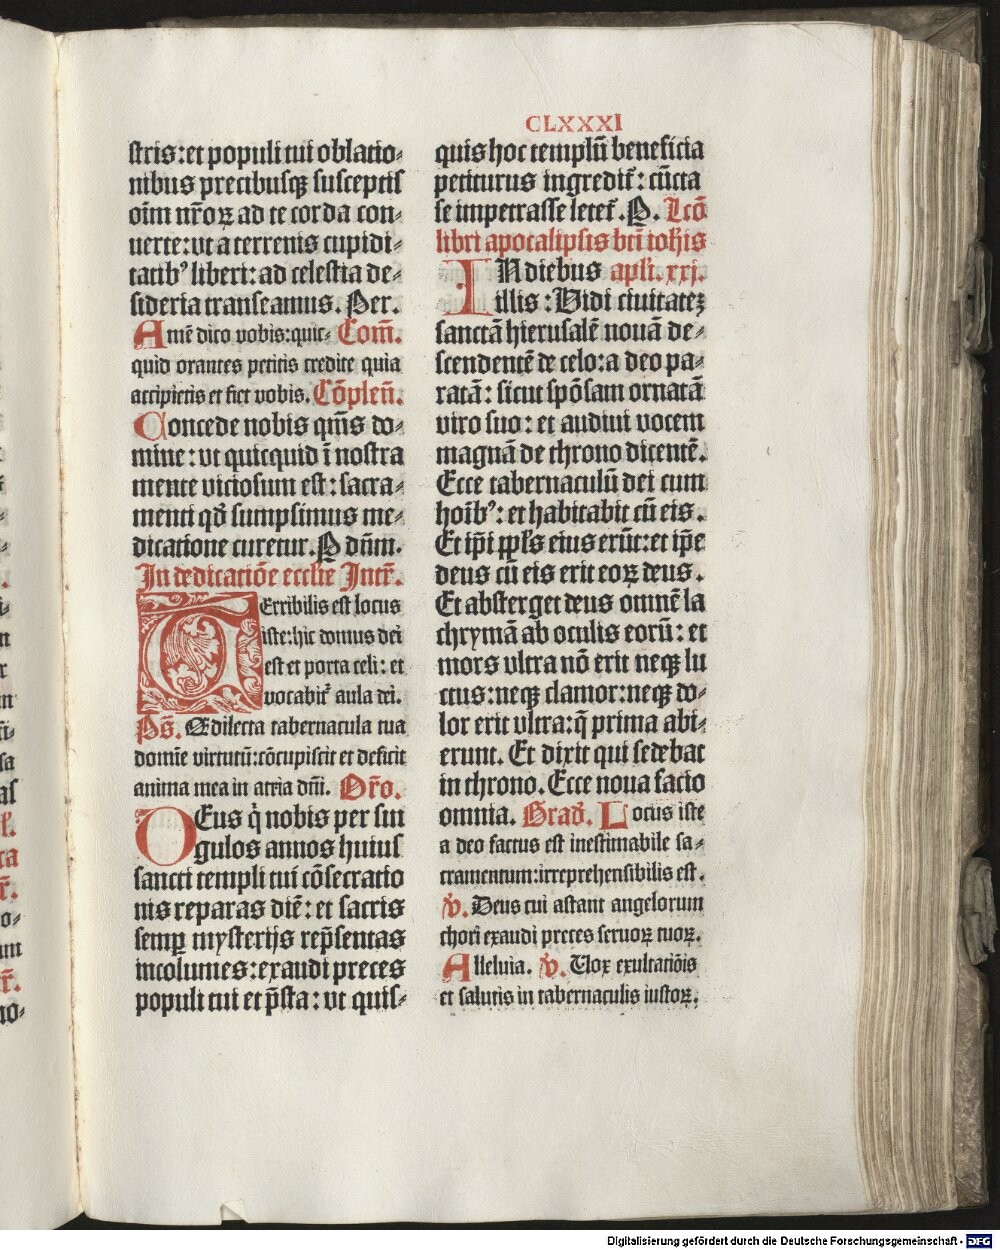 CLXXXI
stris: et populi tui oblatio⸗
nibus precibusqꝫ susceptis
oīm nr̄oꝝ ad te corda con⸗
uerte: vt a terrenis cupidi⸗
tatibꝰ liberi: ad celestia de⸗
sideria transeamus. Per.
Amē dico vobis: quic⸗ Com̄.
quid orantes petitis credite quia
accipietis et fiet vobis. Cōplen̄.
Concede nobis qm̄s do⸗
mine: vt quicquid ī nostra
mente viciosum est: sacra⸗
menti qd̄ sumpsimus me⸗
dicatione curetur. P dn̄m.
In dedicatiōe ecclīe Intr̄.
TErribilis est locus
iste: hic domus dei
est et porta celi: et
vocabit̄ aula dei.
Ps̄. Q̄dilecta tabernacula tua
domīe virtutū: cōcupiscit et deficit
anima mea in atria dn̄i. Or̄o.
DEus q̇ nobis per sin
gulos annos huius
sancti templi tui cōsecratio
nis reparas diē: et sacris
semꝑ mysterijs rep̄sentas
incolumes: exaudi preces
populi tui et p̄sta: vt quis⸗
quis hoc templū beneficia
petiturus ingredit̄: cūcta
se impetrasse letet̄. P. Lcō
libri apocalipsis bti ioħis
IN diebus apli. xxj.
illis: Vidi ciuitatēꝫ
sanctā hierusalē nouā de⸗
scendentē de celo: a deo pa⸗
ratā: sicut spōsam ornatā
viro suo: et audiui vocem
magnā de throno dicentē.
Ecce tabernaculū dei cum
hoībꝰ: et habitabit cū eis.
Et ip̄i ppl̄s eius erūt: et ip̄e
deus cū eis erit eoꝝ deus.
Et absterget deus omnē la
chrymā ab oculis eorū: et
mors vltra nō erit neqꝫ lu
ctus: neqꝫ clamor: neqꝫ do⸗
lor erit vltra: q̄ prima abi⸗
erunt. Et dixit qui sedebat
in throno. Ecce noua facio
omnia. Grad̄. Locus iste
a deo factus est inestimabile sa⸗
cramentum: irreprehensibilis est.
v̇. Deus cui astant angelorum
chori exaudi preces seruoꝝ tuoꝝ.
Alleluia. v̇. Vox exultatiōis
et salutis in tabernaculis iustoꝝ.
Digitalisierung gefördert durch die Deutsche Forschungsgemeinschaft - DFG